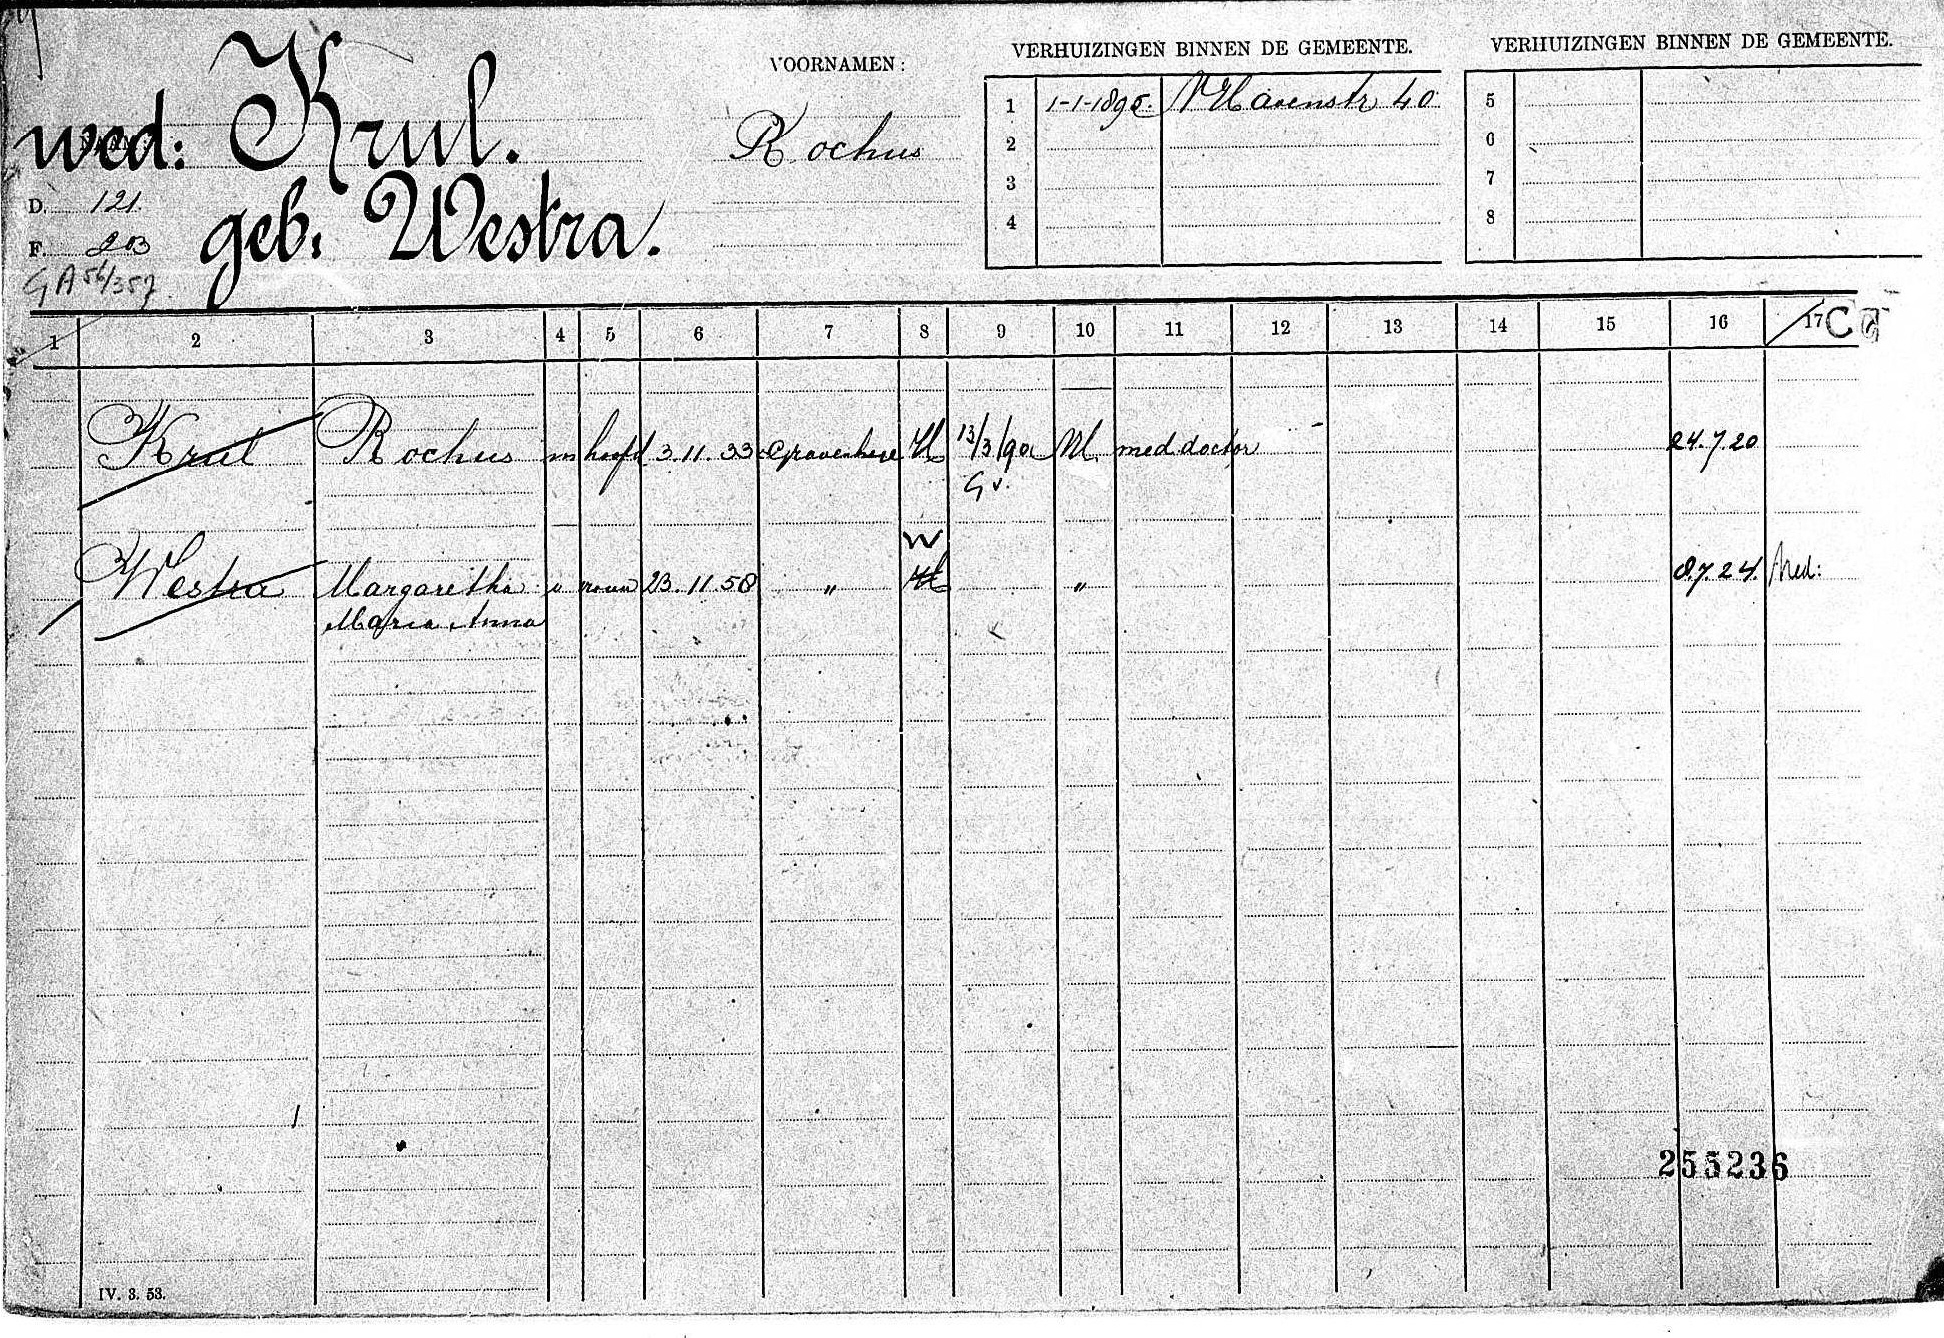 wed: Krul.
geb. Westra.
D. 121.
F. 203
GA 56/357
VOORNAMEN:
Rochus
VERHUIZINGEN BINNEN DE GEMEENTE.
1 1-1-1895.
40
2
3
4
VERHUIZINGEN BINNEN DE GEMEENTE.
5
6
7
8
1 2 3 4 5 6 7 8 9 10 11 12 13 14 15 16 17 C
Krul Rochus m hoofd 3.11.33 's Gravenhage H 13/3/90 NH. med. doctor 24.7.20
G v.
W
Westra Margaretha v vrouw 23.11.58 " H " 8.7.24. Ned:
Maria Anna
255236
IV. 3. 53.